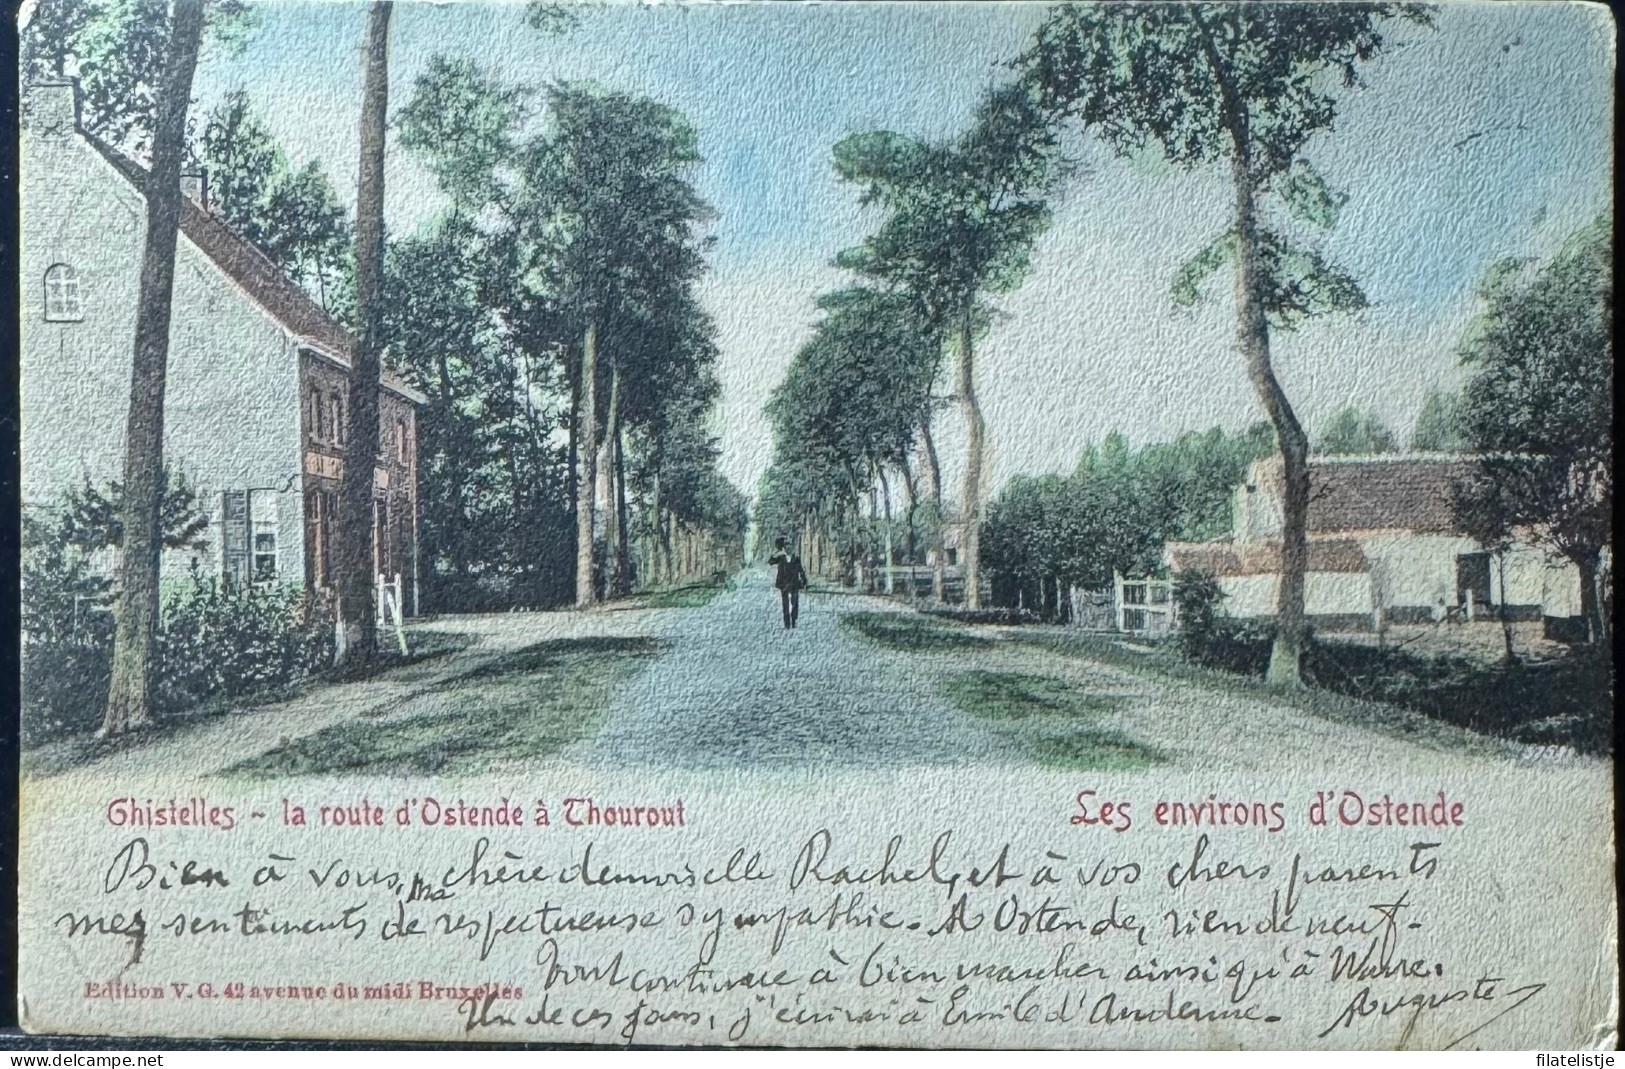 Ghistelles ~ la route d'Ostende à Thourout
Les environs d'Ostende
Bien à vous, chère demoiselle Rachel, et à vos chers parents
mes sentiments de ma respectueuse sympathie. A Ostende, rien de neuf.
Tout continue à bien marcher ainsi qu'à Wavre.
Edition V. G. 42 avenue du midi Bruxelles
Un de ces jours, j'écrirai à Emile d'Andenne. Auguste
filatelistje